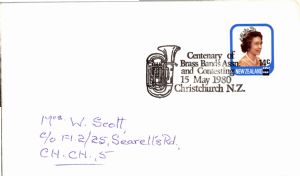 Centenary of
Brass Bands Assn
and Contesting
15 May 1980
Christchurch N.Z.
NEW ZEALAND
Mrs. W. Scott,
c/o Fl. 2/25, Searells Rd.
CH. CH., 5